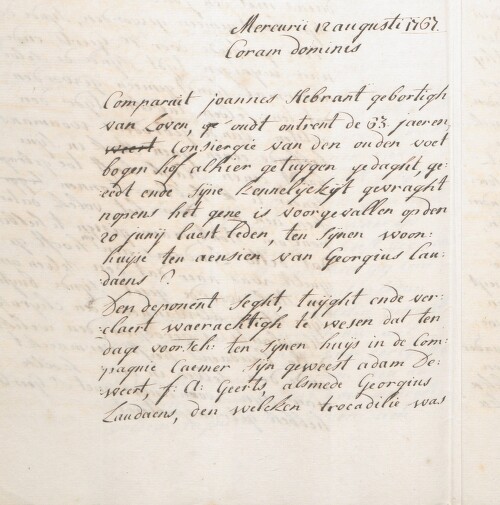 Mercurii 12 augusti 1767.
Coram dominis
Comparuit joannes Hebrant gebortigh
van Loven, oudt ontrent de 63. jaeren,
weert Consiergie van den ouden voet
bogen hof alhier getuygen gedaght, ge:
:edt ende sijne kennelyckzijt gevraght
nopens het gene is voorgevallen op den
20 junij laest leden, ten sijnen woon:
:huijse ten aensien van Georgius Lau:
:daens ?
Den deponent Seght, tuijght ende ver:
:claert waerachtigh te wesen dat ten
dage voorsch: ten sijnen huijs in de Com:
:pagnie Caemer sijn geweest adam De:
:weert, f: A: Geerts, alsmede Georgius
Laudaens, den welcken trocadilie was